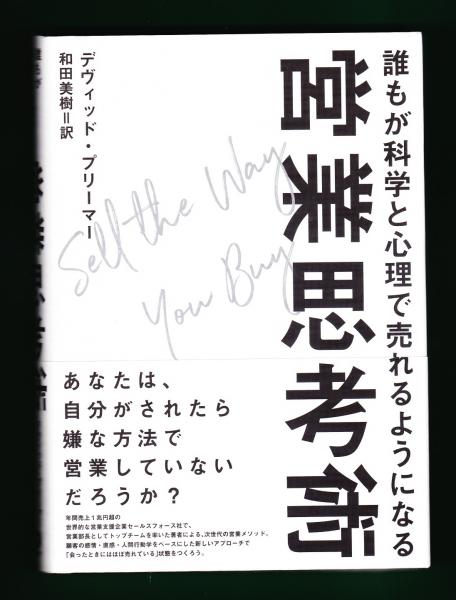 誰もが科学と心理で売れるようになる
営業思考術
デヴィッド・プリーマー
和田美樹=訳
Sell the Way
You Buy
あなたは、
自分がされたら
嫌な方法で
営業していない
だろうか?
年間売上1兆円超の
世界的な営業支援企業セールスフォース社で、
営業部長としてトップチームを率いた著者による、次世代の営業メソッド。
顧客の感情・直感・人間行動学をベースにした新しいアプローチで
「会ったときにはほぼ売れている」状態をつくろう。